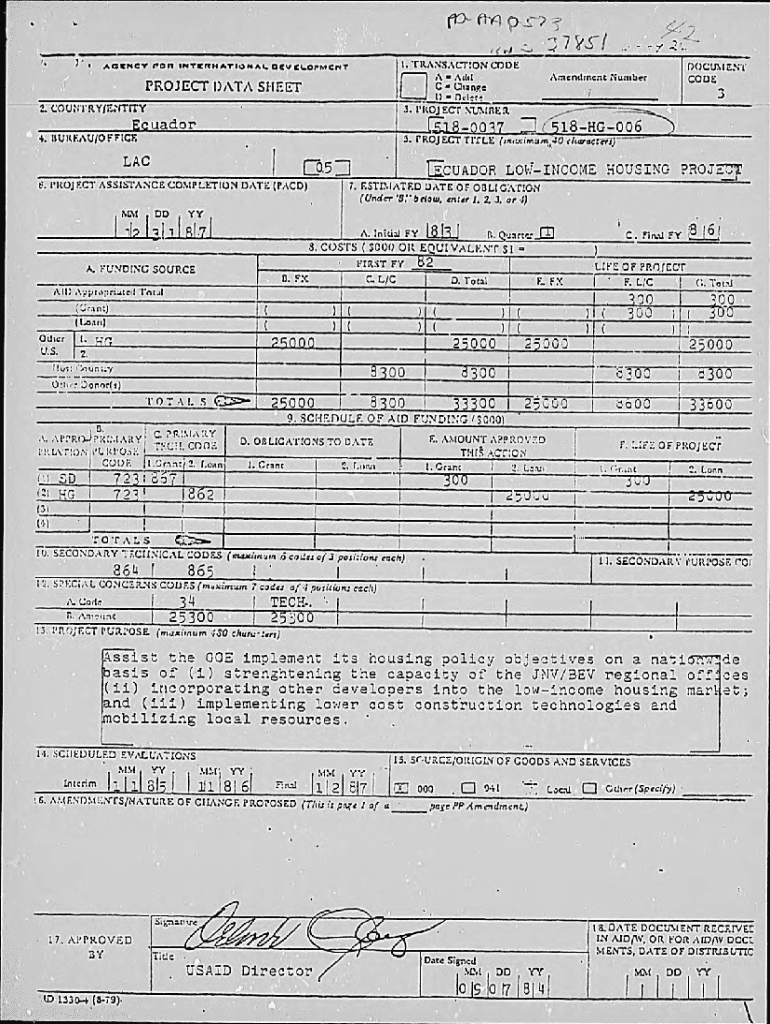 PD-AAP573
37851
42
AGENCY FOR INTERNATIONAL DEVELOPMENT
PROJECT DATA SHEET
1. TRANSACTION CODE
A = Add
C = Change
D = Delete
Amendment Number
DOCUMENT CODE
3
2. COUNTRY/ENTITY
Ecuador
3. PROJECT NUMBER
518-0037 518-HG-006
4. BUREAU/OFFICE
LAC 05
5. PROJECT TITLE (maximum 40 characters)
ECUADOR LOW-INCOME HOUSING PROJECT
6. PROJECT ASSISTANCE COMPLETION DATE (PACD)
MM DD YY
12 31 87
7. ESTIMATED DATE OF OBLIGATION
(Under 'B.' below, enter 1, 2, 3, or 4)
A. Initial FY 83 B. Quarter 1 C. Final FY 86
8. COSTS ($000 OR EQUIVALENT $1 = )
A. FUNDING SOURCE FIRST FY 82 LIFE OF PROJECT
B. FX C. L/C D. Total E. FX F. L/C G. Total
AID Appropriated Total 300 300
(Grant) ( ) ( ) ( ) ( ) ( 300 ) ( 300 )
(Loan) ( ) ( ) ( ) ( ) ( ) ( )
Other U.S. 1. HG 25000 25000 25000 25000
2.
Host Country 8300 8300 8300 8300
Other Donor(s)
TOTALS 25000 8300 33300 25000 8600 33600
9. SCHEDULE OF AID FUNDING ($000)
A. APPROPRIATION B. PRIMARY PURPOSE CODE C. PRIMARY TECH. CODE D. OBLIGATIONS TO DATE E. AMOUNT APPROVED THIS ACTION F. LIFE OF PROJECT
1. Grant 2. Loan 1. Grant 2. Loan 1. Grant 2. Loan 1. Grant 2. Loan
(1) SD 723 867 300 300
(2) HG 723 862 25000 25000
(3)
(4)
TOTALS
10. SECONDARY TECHNICAL CODES (maximum 6 codes of 3 positions each)
864 865
11. SECONDARY PURPOSE CO
12. SPECIAL CONCERNS CODES (maximum 7 codes of 4 positions each)
A. Code 34 TECH.
B. Amount 25300 25300
13. PROJECT PURPOSE (maximum 480 characters)
Assist the GOE implement its housing policy objectives on a nationwide
basis of (i) strenghtening the capacity of the JNV/BEV regional offices
(ii) incorporating other developers into the low-income housing market;
and (iii) implementing lower cost construction technologies and
mobilizing local resources.
14. SCHEDULED EVALUATIONS
MM YY MM YY MM YY
Interim 11 85 11 86 Final 12 87
15. SOURCE/ORIGIN OF GOODS AND SERVICES
000 941 Local Other (Specify)
16. AMENDMENTS/NATURE OF CHANGE PROPOSED (This is page 1 of a ____ page PP Amendment.)
17. APPROVED BY
Signature
Title
USAID Director
Date Signed
MM DD YY
05 07 84
18. DATE DOCUMENT RECEIVED
IN AID/W, OR FOR AID/W DOCU
MENTS, DATE OF DISTRIBUTIO
MM DD YY
AID 1330-4 (8-79)